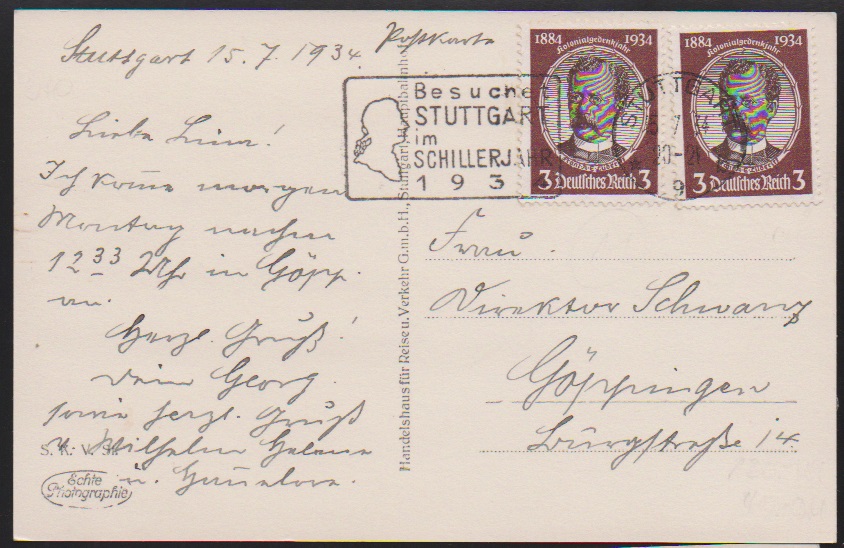 Stuttgart 15.7.1934.
Postkarte
Liebe Lina!
Ich komme morgen
Montag nachm
12 33 Uhr in Göpp.
an.
Herzl. Gruß!
Dein Georg.
sowie herzl. Gruß
v. Wilhelm Helene
u. Hannelore.
S. K. V. St.
Echte
Photographie
Handelshaus für Reise u. Verkehr G.m.b.H., Stuttgart, Hauptbahnhof
Besuchet
STUTTGART
im
SCHILLERJAHR
1934
STUTTGART
20-21
9
1884 1934
Kolonialgedenkjahr
3 Deutsches Reich 3
1884 1934
Kolonialgedenkjahr
3 Deutsches Reich 3
Frau
Direktor Schwarz
Göppingen
Burgstraße 14.